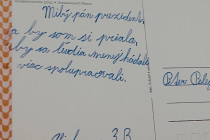 Milý pán prezident,
a by som si priala,
by sa ľudia menej hádali
viac spolupracovali.
Peter Pele
3.B